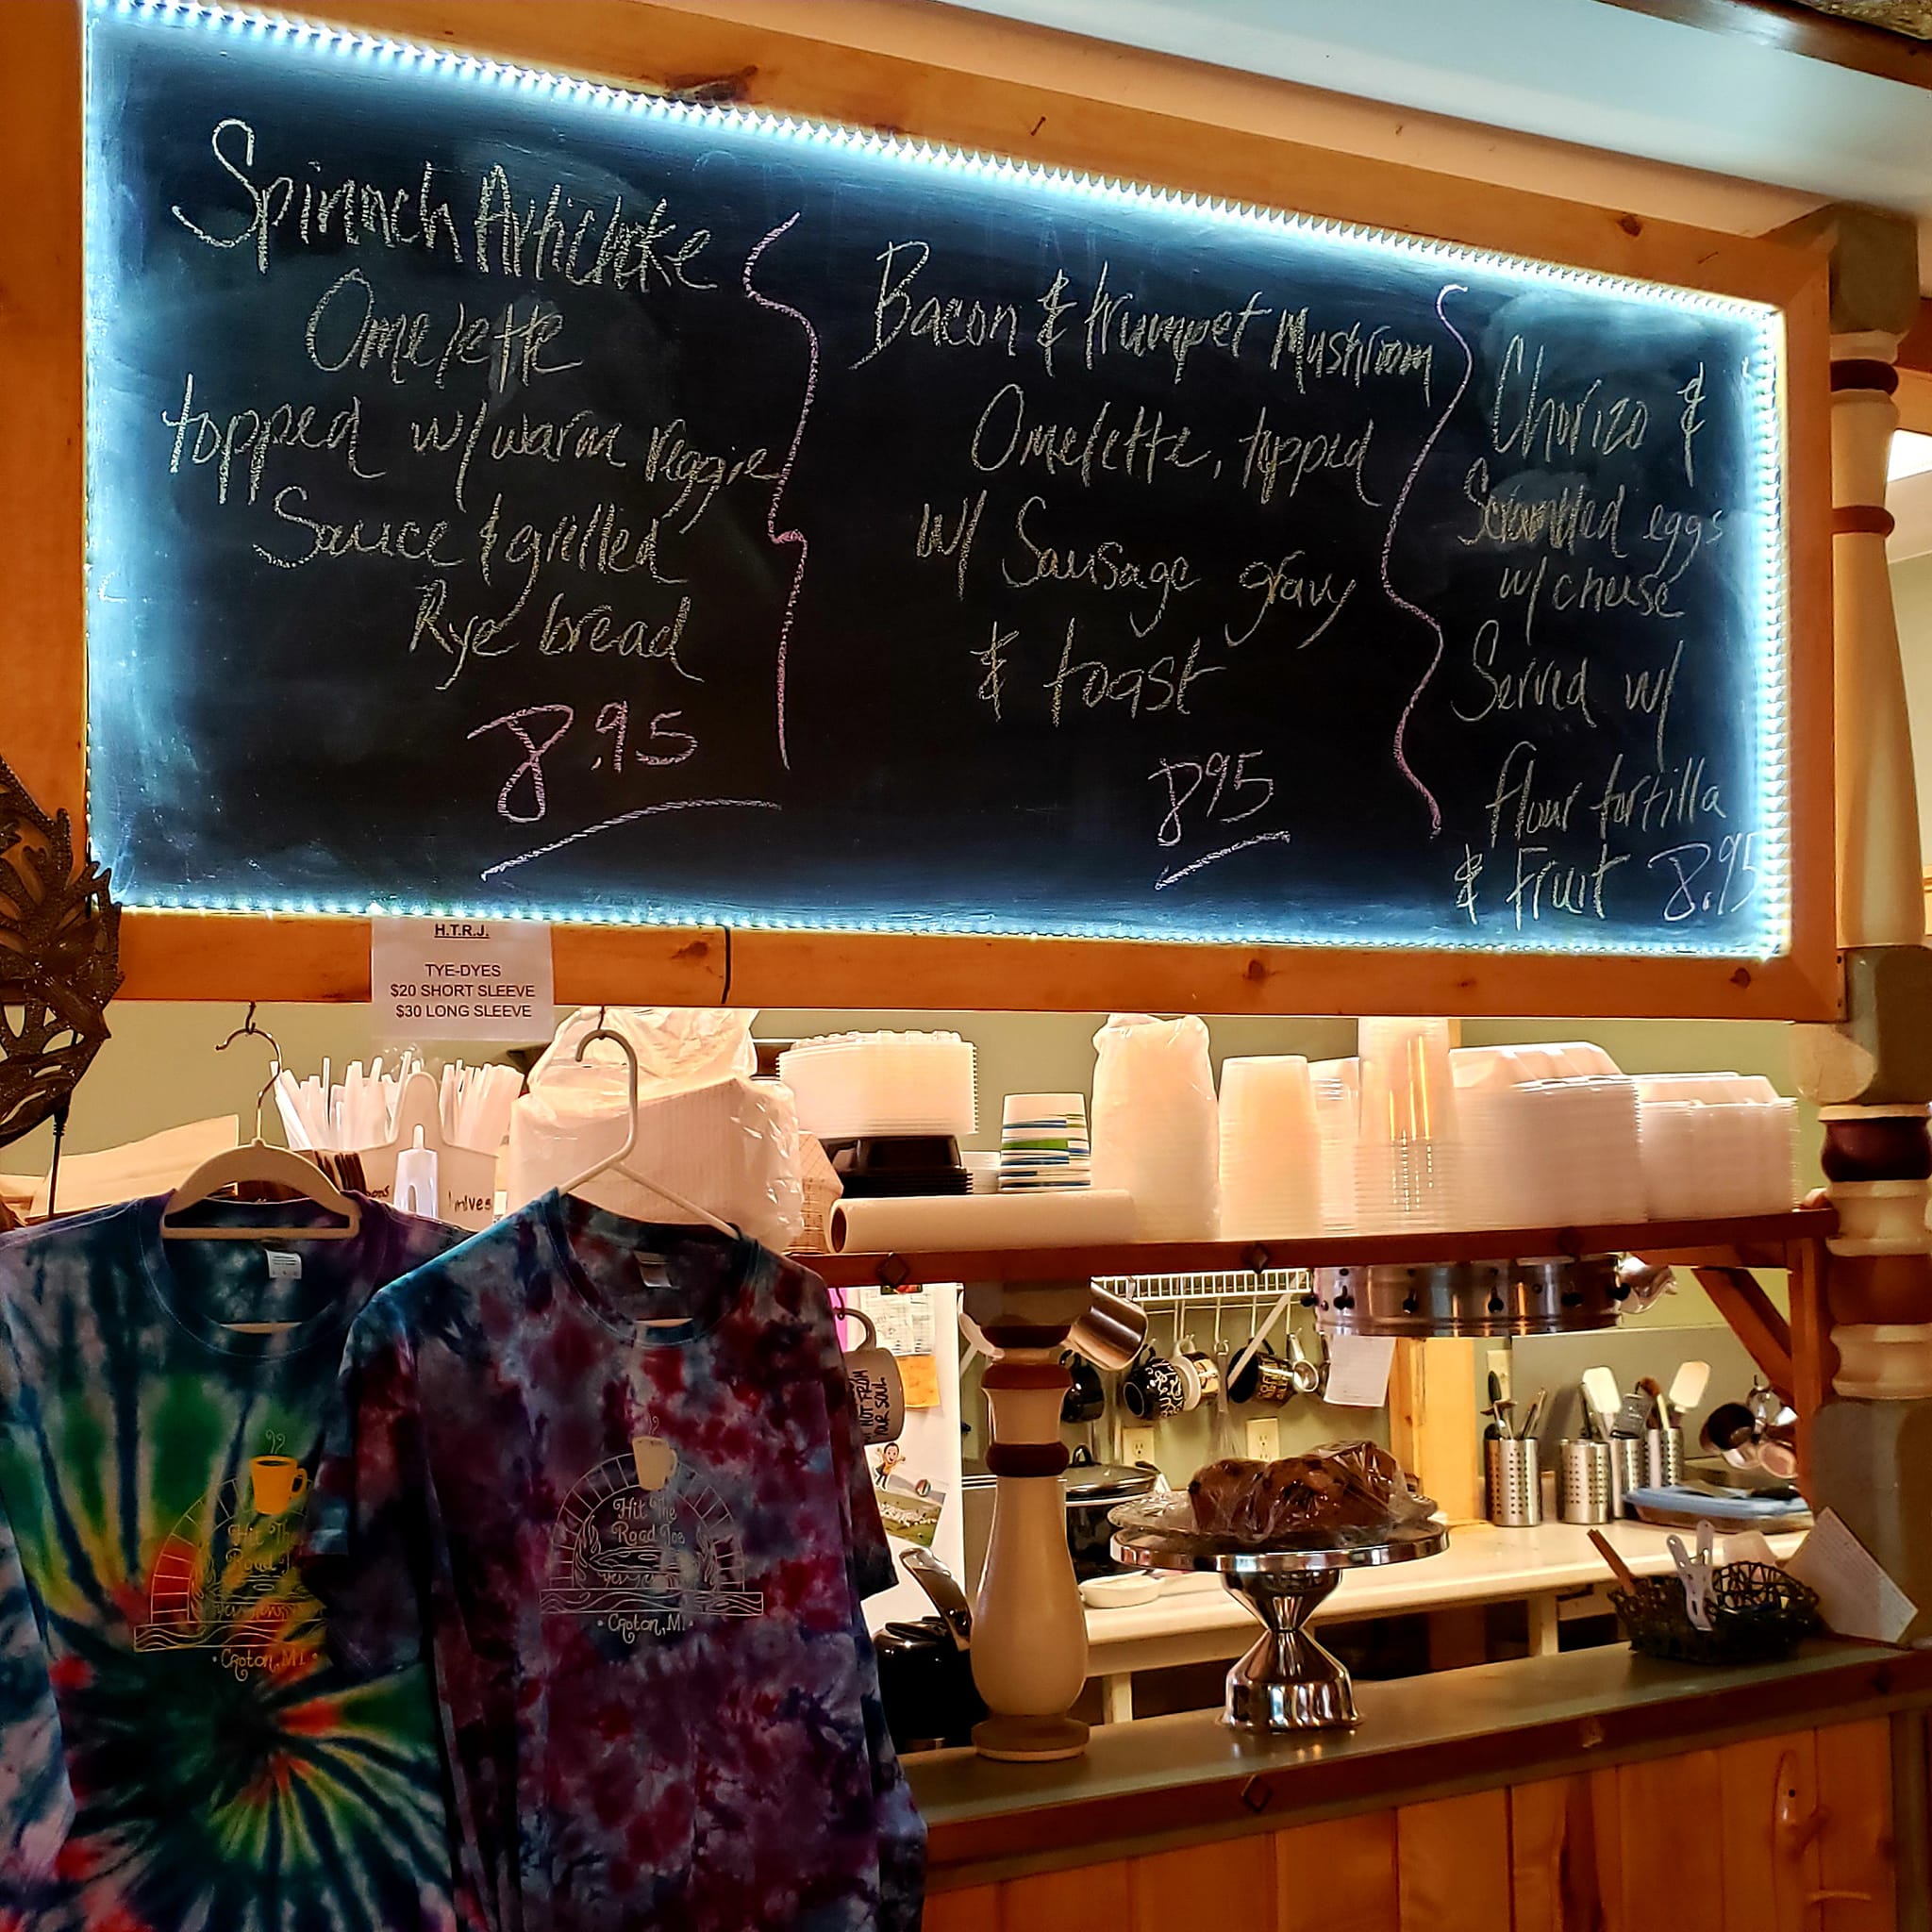 Spinach Artichoke
Omelette
topped w/ warm veggie
Sauce & grilled
Rye bread
8.95
Bacon & trumpet Mushroom
Omelette, topped
w/ Sausage gravy
& toast
8.95
Chorizo &
Scrambled eggs
w/ cheese
Served w/
flour tortilla
& Fruit 8.95
H.T.R.J.
TYE-DYES
$20 SHORT SLEEVE
$30 LONG SLEEVE
knives
NOT FROM
YOUR SOUL
Hit The
Road
• Croton, MI •
Hit The
Road Joe
• Croton, MI •